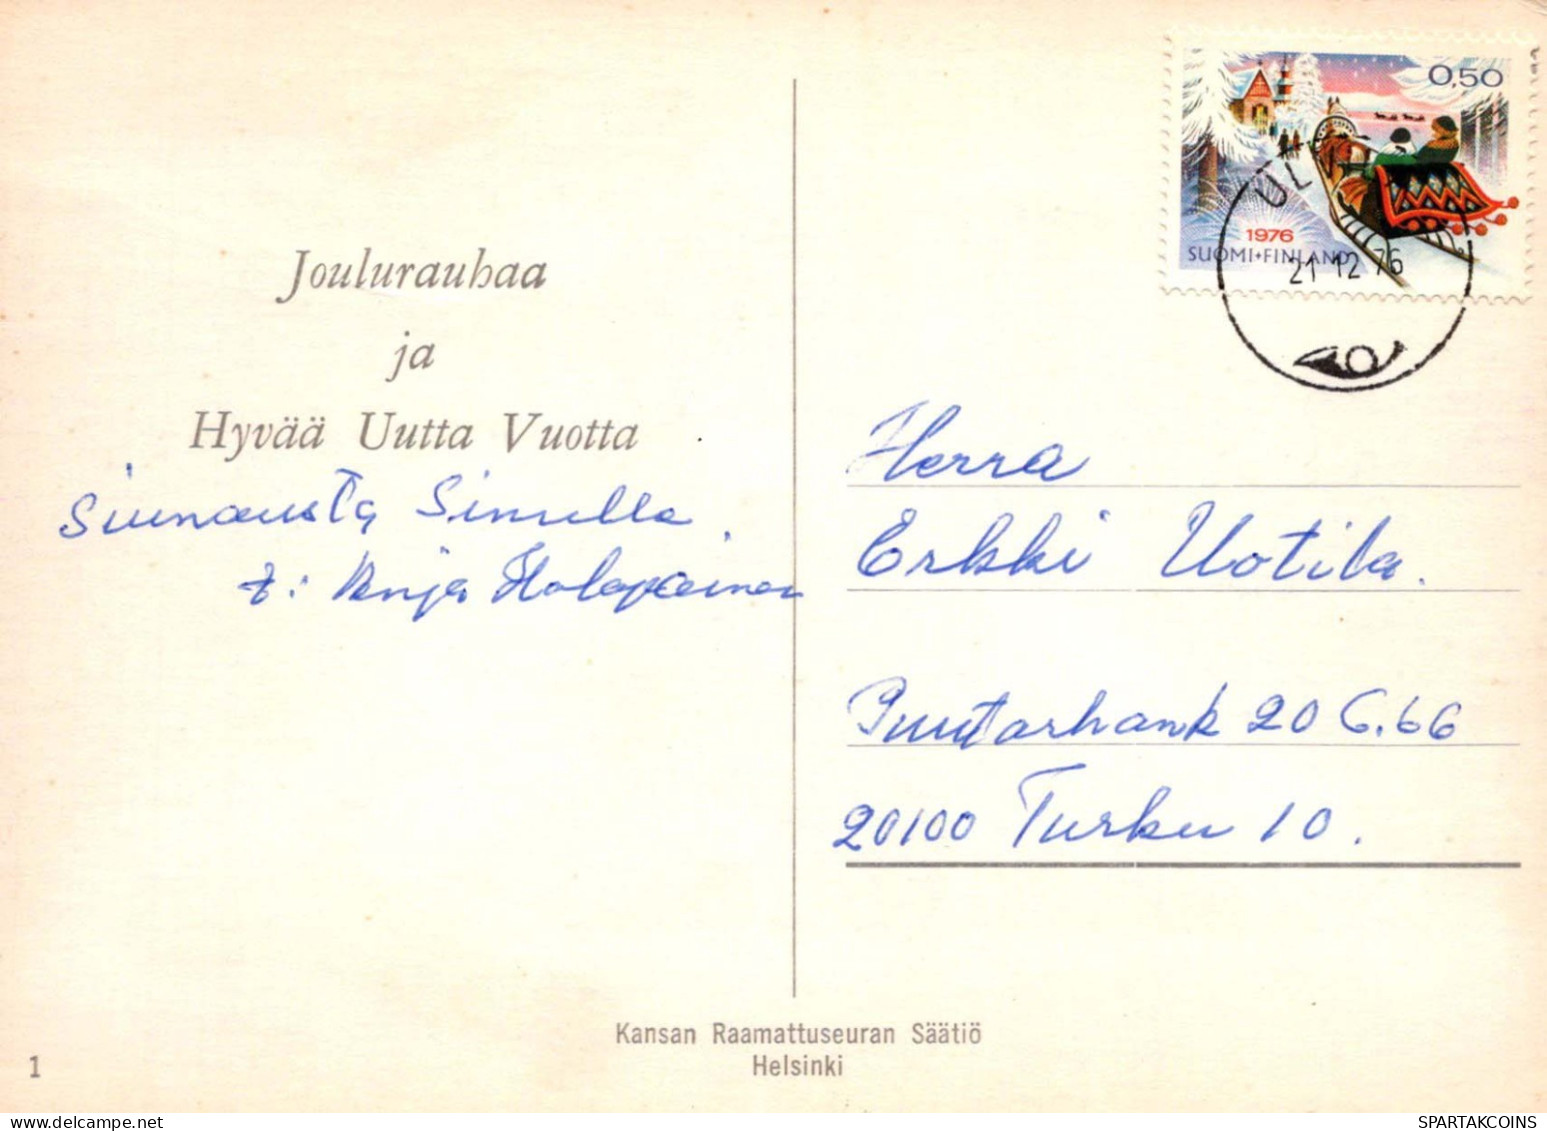 0,50
1976
SUOMI+FINLAND
21 12 76
Joulurauhaa
ja
Hyvää Uutta Vuotta
Siunausta Sinulle.
t: Holopainen
Herra
Erkki Uotila.
Puutarhank 20 C.66
20100 Turku 10.
Kansan Raamattuseuran Säätiö
Helsinki
1
SPARTAKCOINS